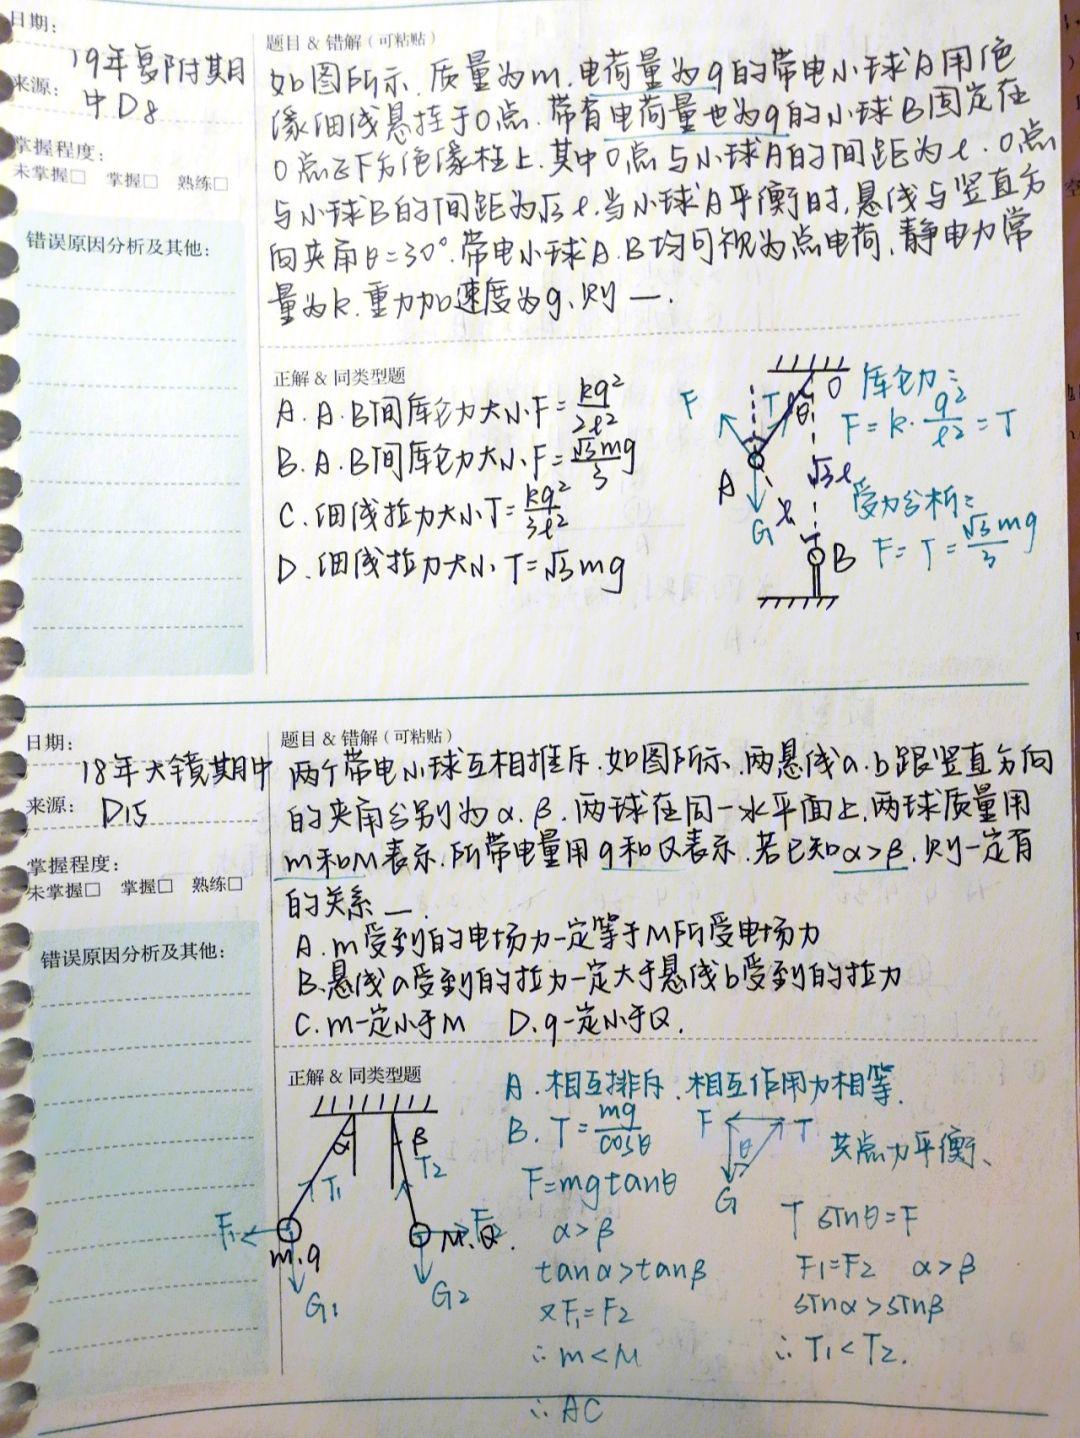 日期:
来源: 19年复附其月
中D8
掌握程度:
未掌握□ 掌握□ 熟练□
错误原因分析及其他:
题目 & 错解（可粘贴）
如图所示.质量为m.电荷量为q的带电小球A用绝
缘细线悬挂于O点.带有电荷量也为q的小球B固定在
O点正下方绝缘柱上.其中O点与小球A的间距为l.O点
与小球B的间距为√3l.当小球A平衡时,悬线与竖直方
向夹角θ=30°.带电小球A.B均可视为点电荷,静电力常
量为k.重力加速度为g,则 — .
正解 & 同类型题
A. A.B间库仑力大小F=kq²/2l²
B. A.B间库仑力大小F=√3mg/3
C.细线拉力大小T=kq²/3l²
D.细线拉力大小T=√3mg
F T l θ O
A G l √3l
B
库仑力:
F=k·q²/l²=T
受力分析:
F=T=√3mg/3
日期:
18年大镜其月中
来源: D15
掌握程度:
未掌握□ 掌握□ 熟练□
错误原因分析及其他:
题目 & 错解（可粘贴）
两个带电小球互相推斥.如图所示.两悬线a.b跟竖直方向
的夹角分别为α.β.两球在同一水平面上,两球质量用
m和M表示.所带电量用q和Q表示.若已知α>β.则一定有
的关系 — .
A.m受到的电场力一定等于M所受电场力
B.悬线a受到的拉力一定大于悬线b受到的拉力
C.m一定小于M D.q一定小于Q.
正解 & 同类型题
α β
T1 T2
F1 F2
m.q M.Q.
G1 G2
A.相互排斥.相互作用力相等.
B. T=mg/cosθ
F θ T
G
共点力平衡、
F=mgtanθ
α>β
tanα>tanβ
又F1=F2
∴m<M
T sinθ=F
F1=F2 α>β
sinα>sinβ
∴T1<T2.
∴AC